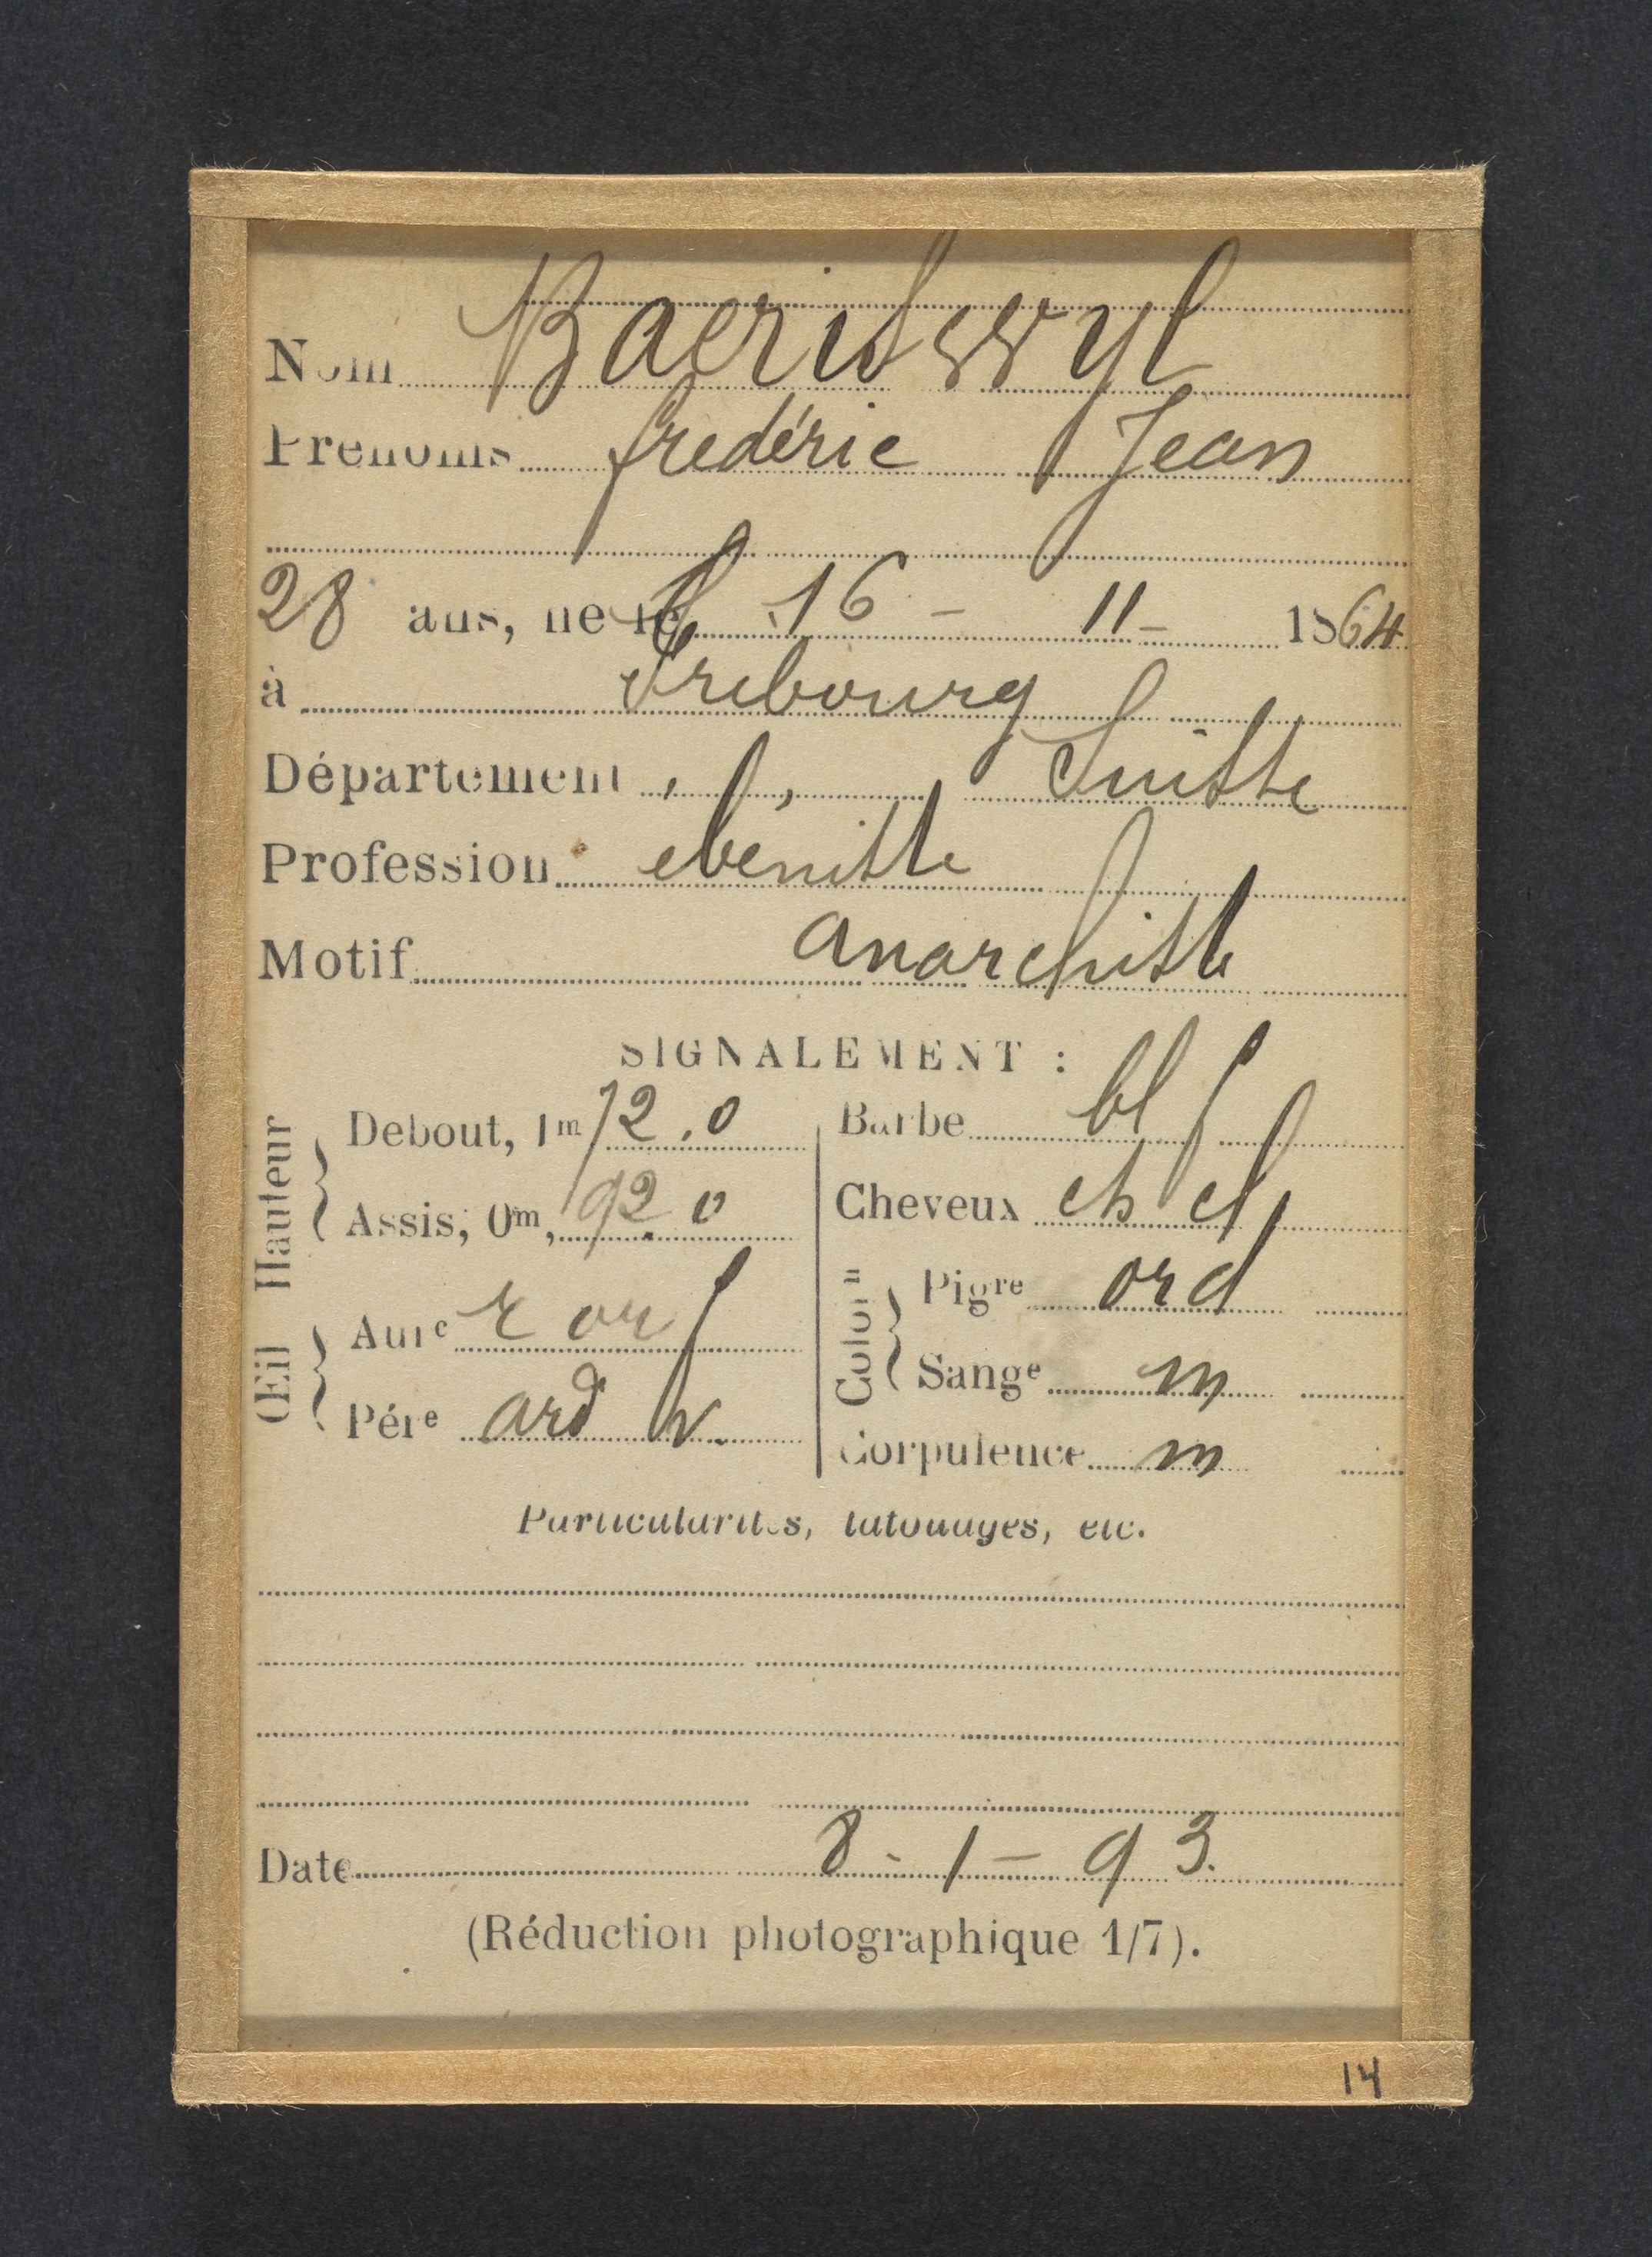 Nom Baeriswyl
Prénoms frédéric Jean
28 ans, né le 16 - 11 - 1864
à Fribourg
Département Suisse
Profession ebéniste
Motif anarchiste
SIGNALEMENT :
Hauteur
Debout, 1m 72.0
Assis, 0m, 92.0
Œil
Aure r or f
Pére ard v.
Barbe bl f
Cheveux ch cl
Coloron
Pigre ord
Sange m
Corpulence m
Particularités, tatouages, etc.
Date 8 - 1 - 93.
(Réduction photographique 1/7).
14